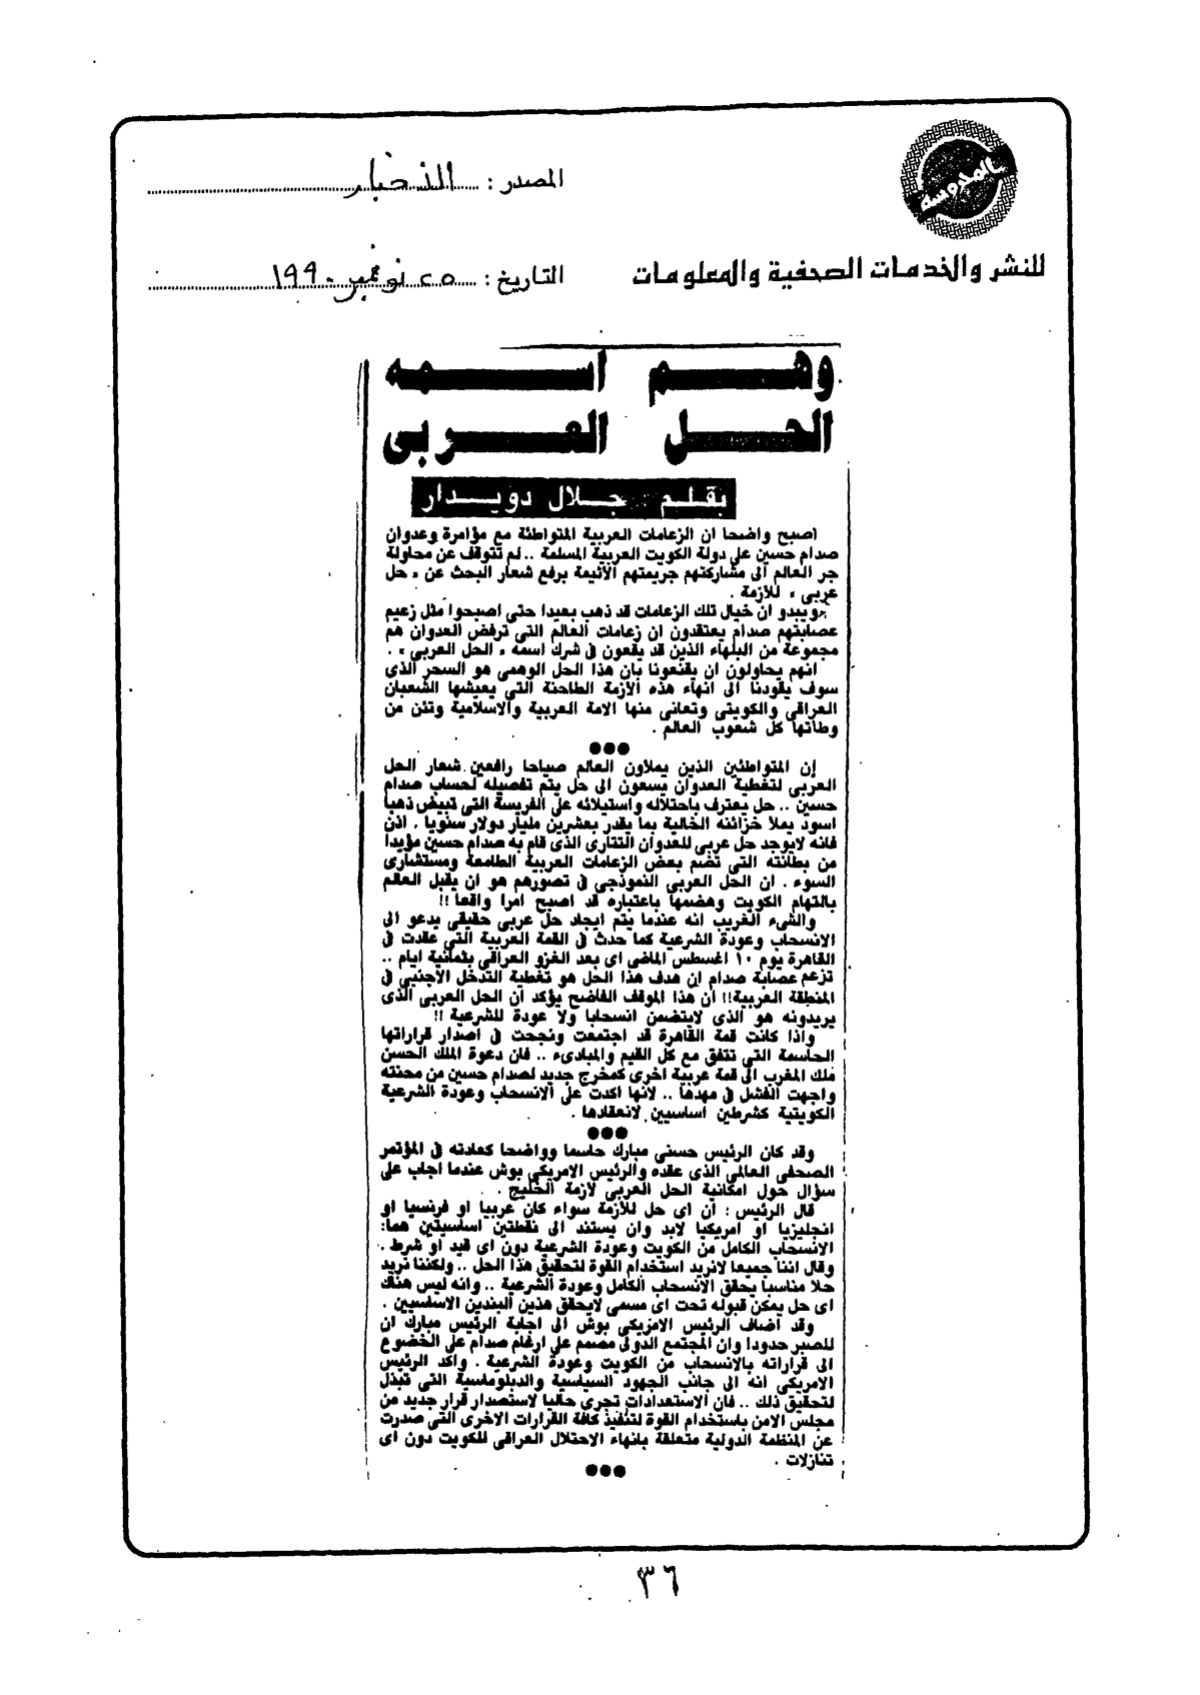 المدوسة
المصدر : الأخبار
للنشر والخدمات الصحفية والمعلومات
التاريخ : ٢٥ نوفمبر ١٩٩٠
وهـم اسـمه
الحـل العـربى
بقلـم : جـلال دويـدار
اصبح واضحا ان الزعامات العربية المتواطئة مع مؤامرة وعدوان
صدام حسين على دولة الكويت العربية المسلمة .. لم تتوقف عن محاولة
جر العالم الى مشاركتهم جريمتهم الاثيمة برفع شعار البحث عن « حل
عربى » للازمة .
ويبدو ان خيال تلك الزعامات قد ذهب بعيدا حتى اصبحوا مثل زعيم
عصابتهم صدام يعتقدون ان زعامات العالم التى ترفض العدوان هم
مجموعة من البلهاء الذين قد يقعون فى شرك اسمه « الحل العربى » .
انهم يحاولون ان يقنعونا بان هذا الحل الوهمى هو السحر الذى
سوف يقودنا الى انهاء هذه الازمة الطاحنة التى يعيشها الشعبان
العراقى والكويتى وتعانى منها الامة العربية والاسلامية وتئن من
وطاتها كل شعوب العالم .
●●●
إن المتواطئين الذين يملاون العالم صياحا رافعين شعار الحل
العربى لتغطية العدوان يسعون الى حل يتم تفصيله لحساب صدام
حسين .. حل يعترف باحتلاله واستيلائه على الفريسة التى تبيض ذهبا
اسود يملا خزائنه الخالية بما يقدر بعشرين مليار دولار سنويا . اذن
فانه لايوجد حل عربى للعدوان التتارى الذى قام به صدام حسين مؤيدا
من بطانته التى تضم بعض الزعامات العربية الطامعة ومستشارى
السوء . ان الحل العربى النموذجى فى تصورهم هو ان يقبل العالم
بالتهام الكويت وهضمها باعتباره قد اصبح امرا واقعا !!
والشىء الغريب انه عندما يتم ايجاد حل عربى حقيقى يدعو الى
الانسحاب وعودة الشرعية كما حدث فى القمة العربية التى عقدت فى
القاهرة يوم ١٠ اغسطس الماضى اى بعد الغزو العراقى بثمانية ايام ..
تزعم عصابة صدام ان هدف هذا الحل هو تغطية التدخل الاجنبى فى
المنطقة العربية!! ان هذا الموقف الفاضح يؤكد ان الحل العربى الذى
يريدونه هو الذى لايتضمن انسحابا ولا عودة للشرعية !!
واذا كانت قمة القاهرة قد اجتمعت ونجحت فى اصدار قراراتها
الحاسمة التى تتفق مع كل القيم والمبادىء .. فان دعوة الملك الحسن
ملك المغرب الى قمة عربية اخرى كمخرج جديد لصدام حسين من محنته
واجهت الفشل فى مهدها .. لانها اكدت على الانسحاب وعودة الشرعية
الكويتية كشرطين اساسيين لانعقادها .
●●●
وقد كان الرئيس حسنى مبارك حاسما وواضحا كعادته فى المؤتمر
الصحفى العالمى الذى عقده والرئيس الامريكى بوش عندما اجاب على
سؤال حول امكانية الحل العربى لازمة الخليج .
قال الرئيس : ان اى حل للأزمة سواء كان عربيا او فرنسيا او
انجليزيا او امريكيا لابد وان يستند الى نقطتين اساسيتين هما:
الانسحاب الكامل من الكويت وعودة الشرعية دون اى قيد او شرط .
وقال اننا جميعا لانريد استخدام القوة لتحقيق هذا الحل .. ولكننا نريد
حلا مناسبا يحقق الانسحاب الكامل وعودة الشرعية .. وانه ليس هناك
اى حل يمكن قبوله تحت اى مسمى لايحقق هذين البندين الاساسيين .
وقد اضاف الرئيس الامريكى بوش الى اجابة الرئيس مبارك ان
للصبر حدودا وان المجتمع الدولى مصمم على ارغام صدام على الخضوع
الى قراراته بالانسحاب من الكويت وعودة الشرعية . واكد الرئيس
الامريكى انه الى جانب الجهود السياسية والدبلوماسية التى تبذل
لتحقيق ذلك .. فان الاستعدادات تجرى حاليا لاستصدار قرار جديد من
مجلس الامن باستخدام القوة لتنفيذ كافة القرارات الاخرى التى صدرت
عن المنظمة الدولية متعلقة بانهاء الاحتلال العراقى للكويت دون اى
تنازلات .
●●●
٣٦